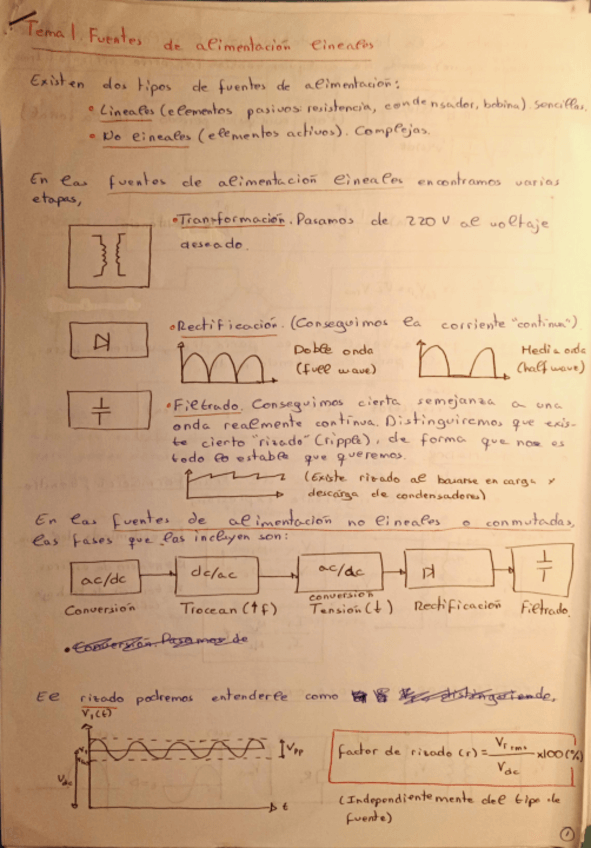 Tema 1. Fuentes de alimentación lineales
Existen dos tipos de fuentes de alimentación:
• Lineales (elementos pasivos: resistencia, condensador, bobina). Sencillas.
• No lineales (elementos activos). Complejas.
En las fuentes de alimentación lineales encontramos varias
etapas,
• Transformación. Pasamos de 220 V al voltaje
deseado.
• Rectificación. (Conseguimos la corriente "continua")
Doble onda
(full wave)
Media onda
(half wave)
• Filtrado. Conseguimos cierta semejanza a una
onda realmente continua. Distinguiremos que exis-
te cierto "rizado" (ripple), de forma que no es
todo lo estable que queremos.
(Existe rizado al basarse en carga y
descarga de condensadores)
En las fuentes de alimentación no lineales o conmutadas,
las fases que las incluyen son:
ac/dc
dc/ac
ac/dc
Conversión
Trocean (↑f)
conversión
Tensión (↓)
Rectificación
Filtrado
• Conversión. Pasamos de
El rizado podremos entenderle como distinguiendo,
V₁(t)
Vpp
Vdc
t
Factor de rizado (r) = Vrms / Vdc x100 (%)
(Independientemente del tipo de
fuente)
1